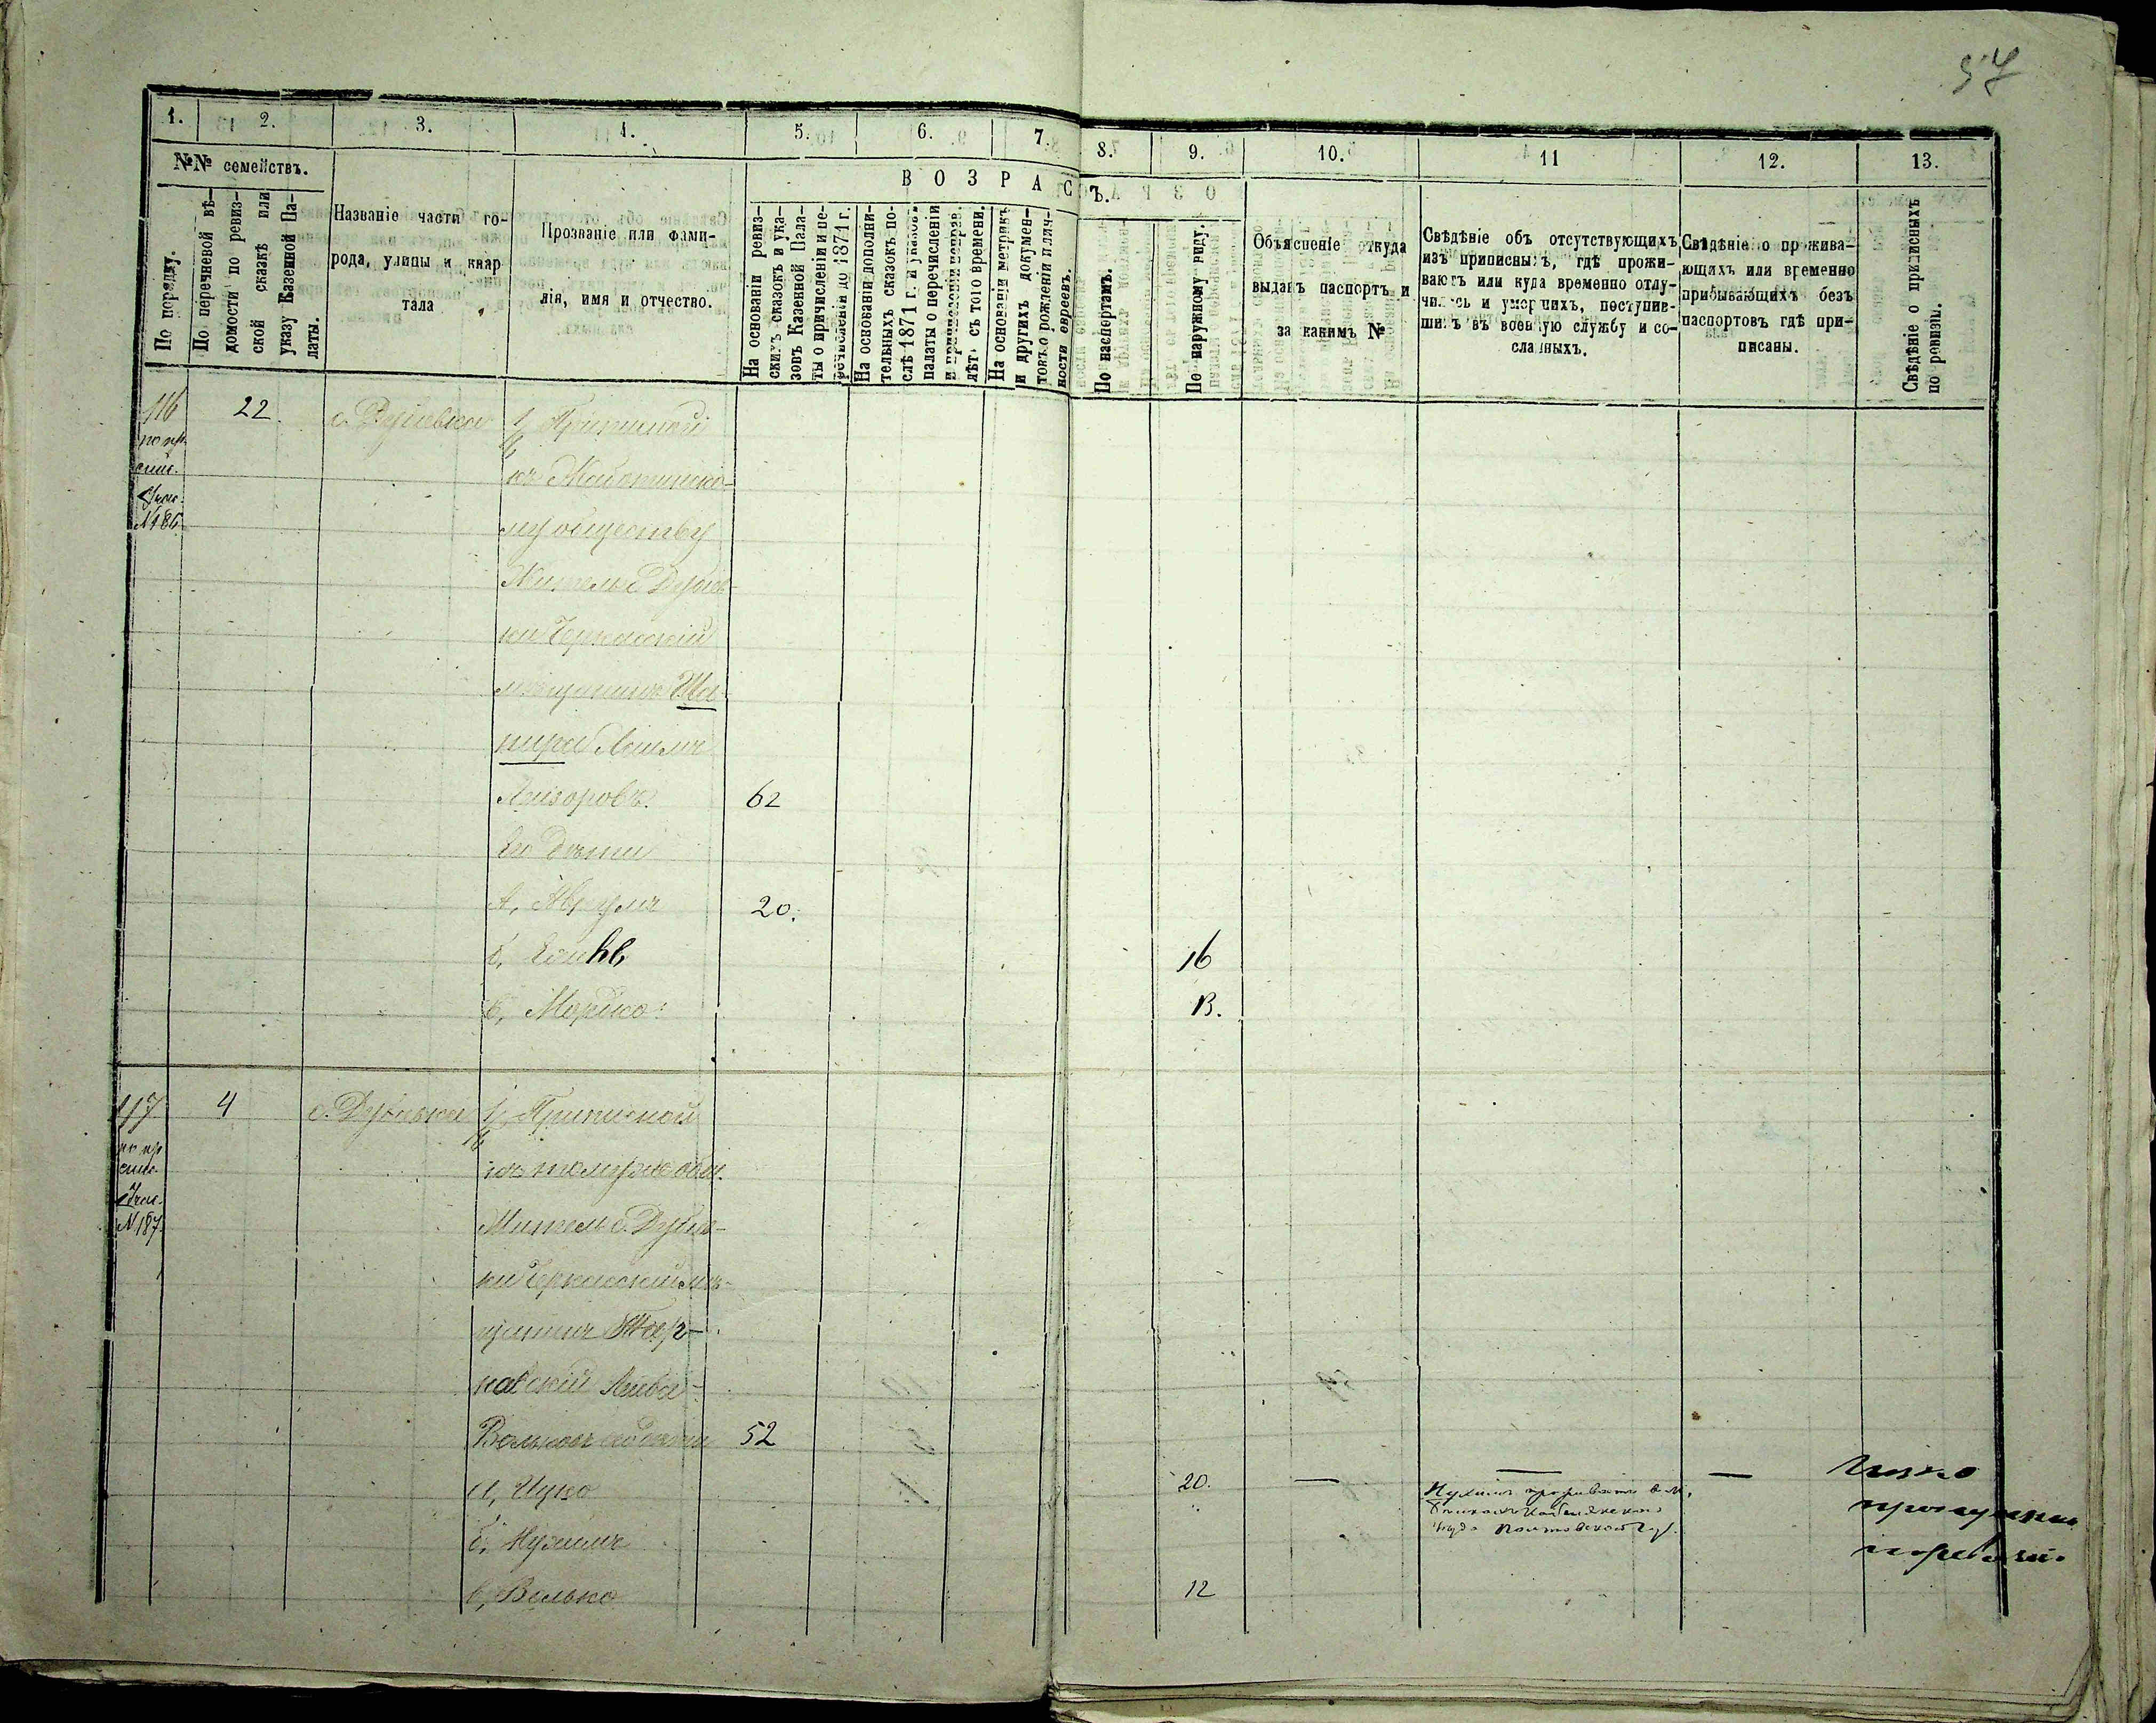 57
1. 2. 3. 4. 5. 6. 7. 8. 9. 10. 11 12. 13.
№№ семействъ.
По порядку.
По перечневой вѣ-
домости по ревиз-
ской сказкѣ или
указу Казенной Па-
латы.
Названіе части го-
рода, улицы и квар
тала
Прозваніе или фами-
лія, имя и отчество.
ВОЗРАСТЪ.
На основаніи ревиз-
скихъ сказокъ и ука-
зовъ Казенной Пала-
ты о причисленіи и пе-
речисленіи до 1871 г.
На основаніи дополни-
тельныхъ сказокъ по-
слѣ 1871 г. и указовъ
палаты о перечисленіи
и причисленіи неправ.
лѣтъ съ того времени.
На основаніи метрикъ
и другихъ докумен-
товъ о рожденіи и лич-
ности евреевъ.
По паспортамъ.
По наружному виду.
Объясненіе откуда
выданъ паспортъ и
за какимъ №
Свѣдѣніе объ отсутствующихъ
изъ приписныхъ, гдѣ прожи-
ваютъ или куда временно отлу-
чились и умершихъ, поступив-
шихъ въ военную службу и со-
сланныхъ.
Свѣдѣніе о прожива-
ющихъ или временно
прибывающихъ безъ
паспортовъ гдѣ при-
писаны.
Свѣдѣніе о приписныхъ
по ревизіи.
116 22 1, Приписной
къ Жаботинско-
му обществу
N 186
Житель с.
ки Черкасскій
мѣщанинъ Ша-
пира
Лейзоровъ. 62
Его дѣти
А, Аврумъ 20.
б, 16
в, Мошко 13.
117 4 1, Приписной
къ тому же общ.
N 187 Житель с.
ки Черкасскій мѣ-
щанинъ Тар-
навскій Лейба
Вольковъ его дѣти 52
а, Ицко 20. — — — Ицко
б, Нухимъ Нухимъ проживаетъ в м.
Полтавской Губ.
пропущенъ
по ревизіи.
в, Волько 12